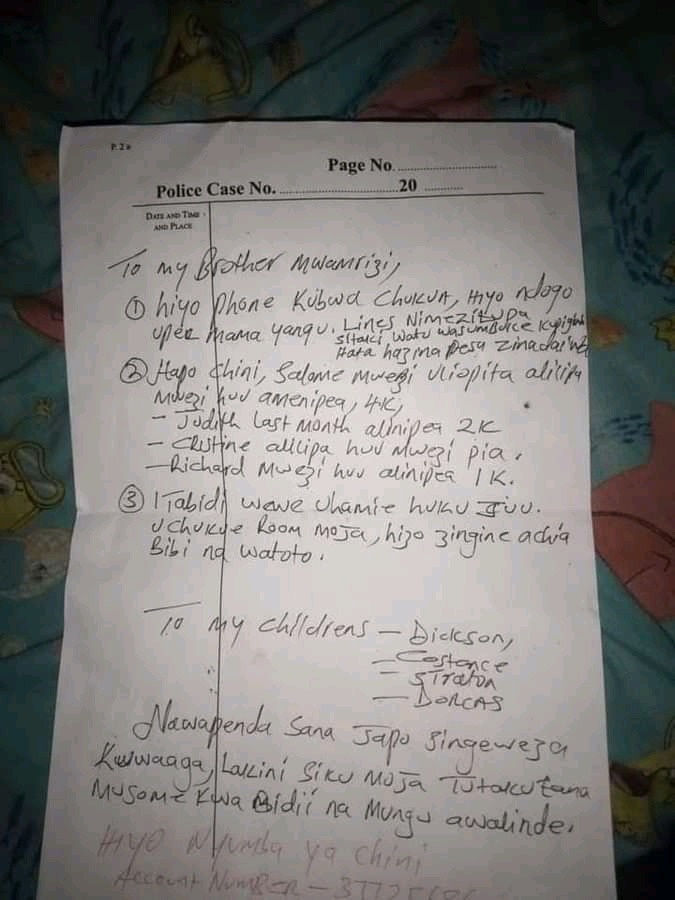 P. 2 a
Page No. ..............................
Police Case No. ....................................20 ............
DATE AND TIME
AND PLACE
To my Brother Mwamrizi,
① hiyo phone Kubwa Chukua, Hiyo ndogo
upee mama yangu. Lines Nimezitupa
sitaki watu wasumbuke kupigia
Hata hazina pesa zinadaiwa
② Hapo chini, Salome mwezi uliopita alilipa
Mwezi huu amenipea, 4K,
- Judith Last month alinipea 2K
- Cristine alilipa huu mwezi pia.
- Richard Mwezi huu alinipea 1K.
③ Itabidi wewe uhamie huku Juu.
uchukue Room moja, hizo zingine achia
Bibi na watoto.
To my childrens - Dickson,
- Costance
- Straton
- DORCAS
Nawapenda Sana Japo Singeweza
Kuwaaga, Lakini Siku Moja Tutakutana
Musome Kwa Bidii na Mungu awalinde.
Hiyo Nyumba ya chini
Account Number -